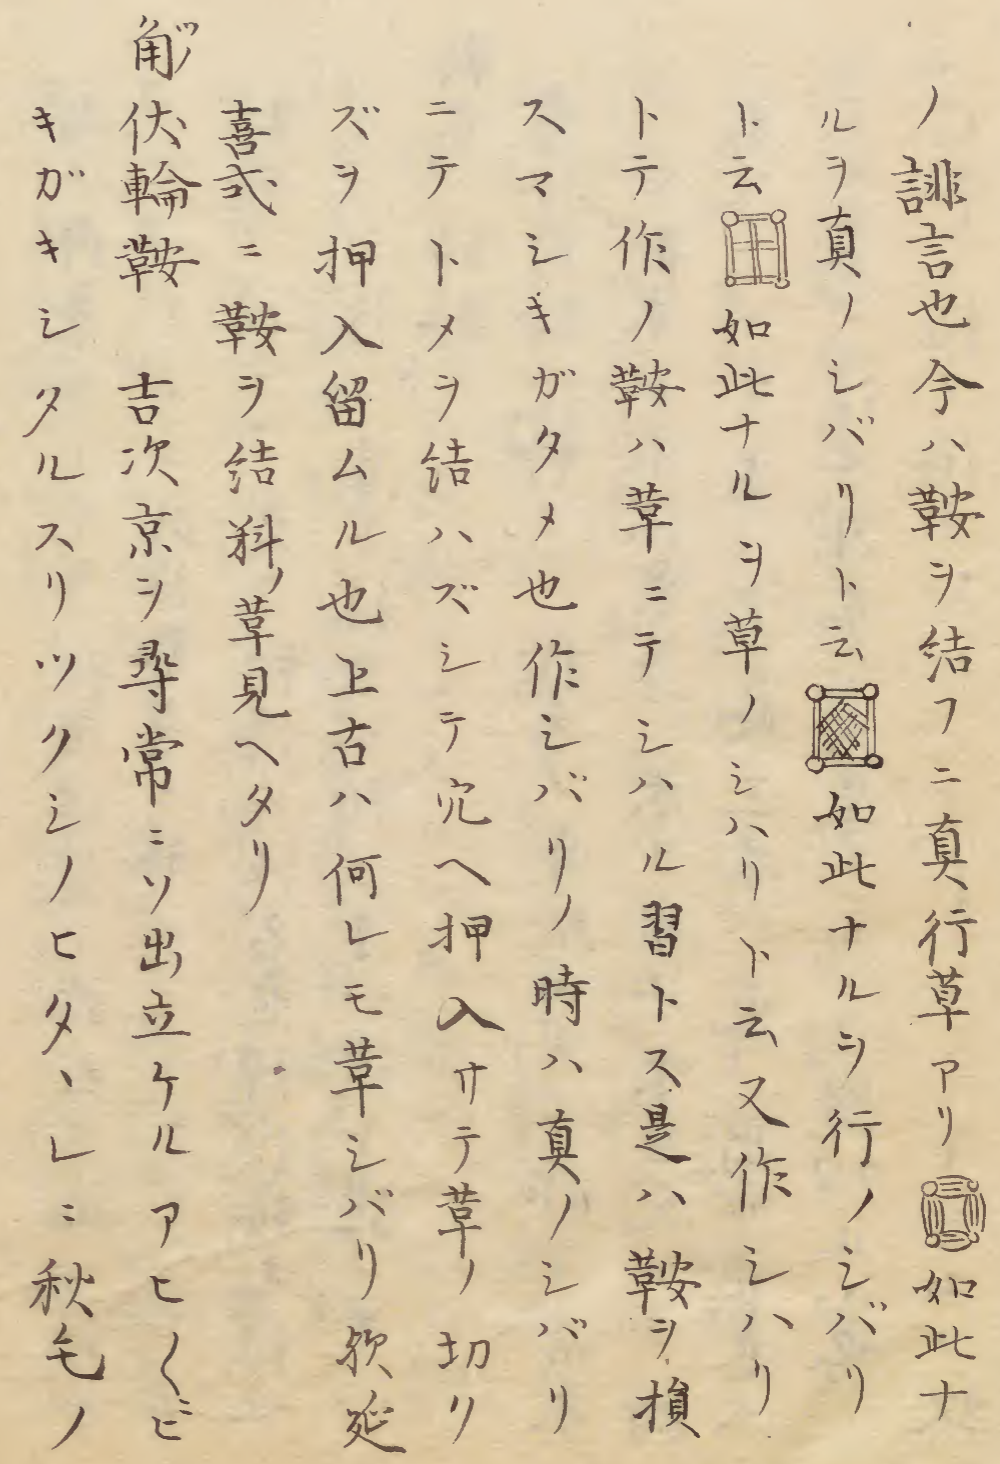 ノ誹言也今ハ鞍ヲ結フニ真行草アリ如此ナ
ルヲ真ノシバリト云如此ナルヲ行ノシバリ
ト云如此ナルヲ草ノシハリト云又作シハリ
トテ作ノ鞍ハ韋ニテシハル習トス是ハ鞍ヲ損
スマシキガタメ也作シバリノ時ハ真ノシバリ
ニテトメヲ結ハズシテ穴ヘ押入サテ韋ノ切リ
ズヲ押入留ムル也上古ハ何レモ韋シバリ欤延
喜式ニ鞍ヲ結料ノ韋見ヘタリ
角ツノ伏輪鞍　吉次京ヲ尋常ニソ出立ケルアヒ〱ビ
キガキシタルスリツクシノヒタヽレニ秋毛ノ